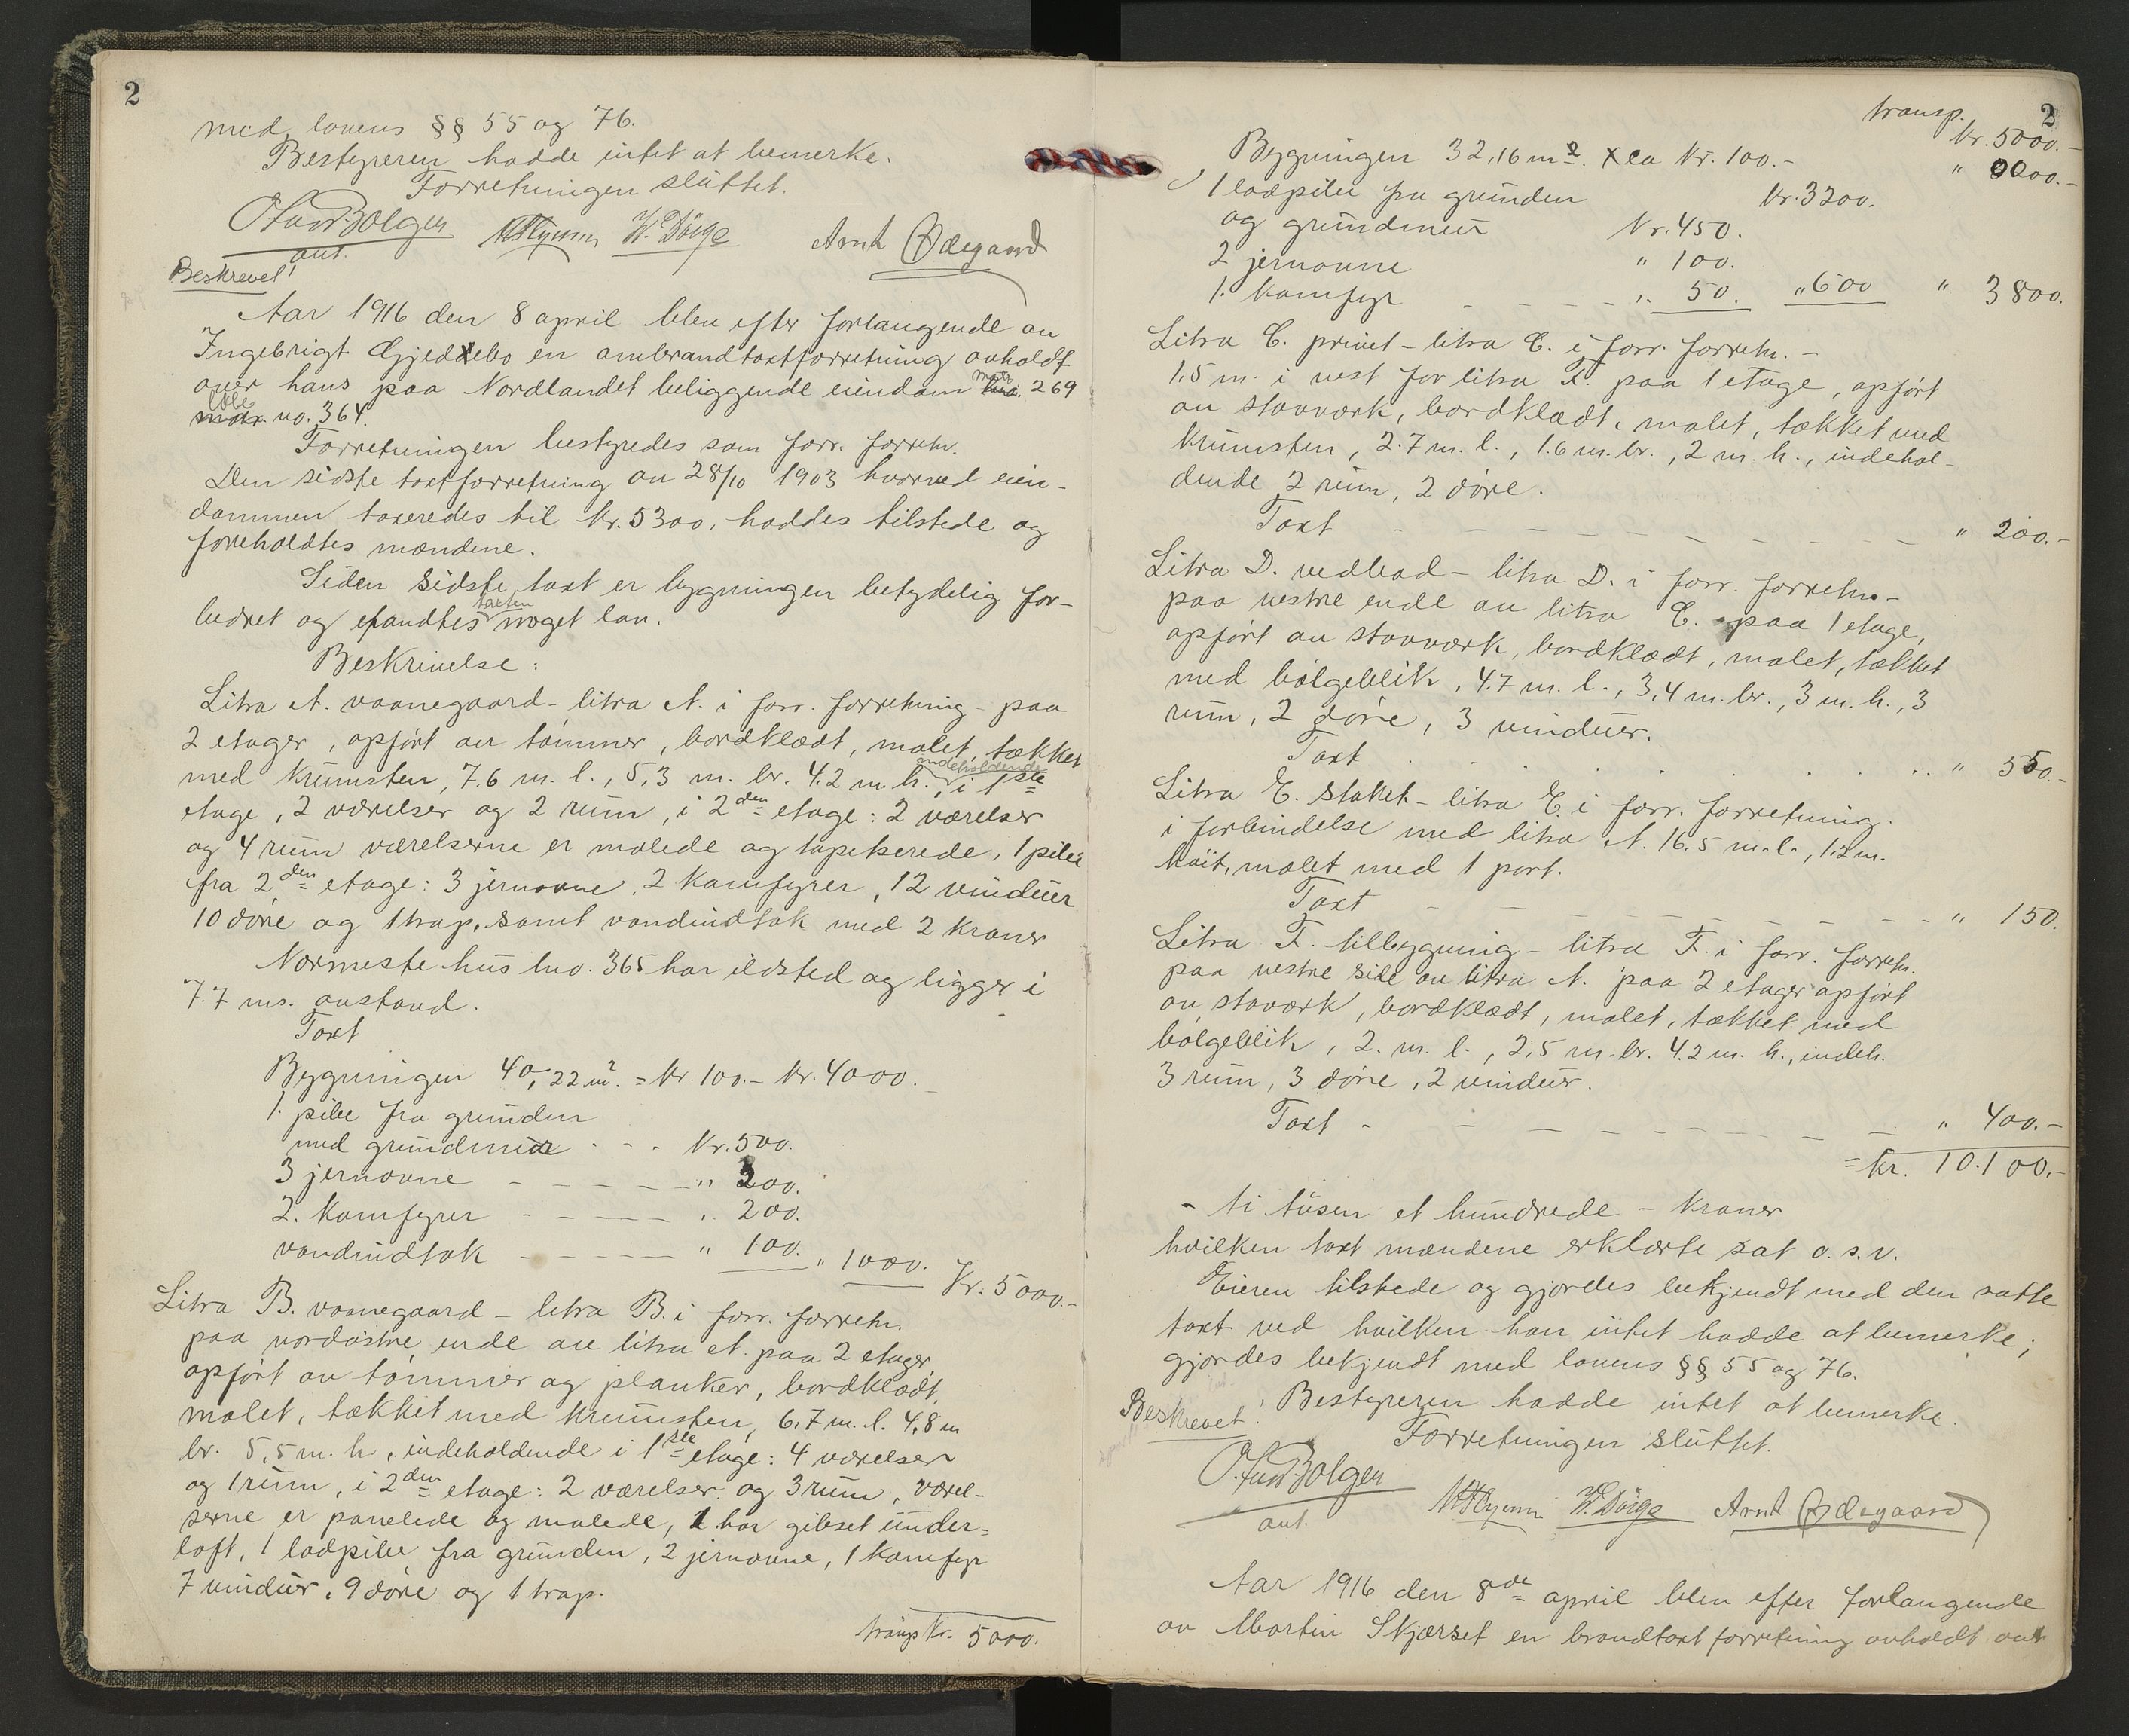 2
med lovens §§ 55 og 76.
Bestyreren hadde intet at bemerke.
Forretningen sluttet.
W. Dörge Arnt Ødegaard
ant.
Beskrevet!
Aar 1916 den 8 april blev efter forlangende av
Ingebrigt Gjedxebo en ombrandtaxtforretning avholdt
over hans paa Nordlandet beliggende eiendom matr. 269
løbe no. 364.
Forretningen bestyredes som forr. forretn.
Den sidste taxtforretning av 28/10 1903 hvorved eien-
dommen taxeredes til kr. 5300, haddes tilstede og
foreholdtes mændene.
Siden sidste taxt er bygningen betydelig for-
bedret og fandtes taxten noget lav.
Beskrivelse:
Litra A. vaanegaard - litra A. i forr. forretning - paa
2 etager, opført av tømmer, bordklædt, malet, tækket
med krumsten, 7.6 m. l., 5,3 m. br. 4.2 m. h., indeholdende i 1ste
etage, 2 værelser og 2 rum, i 2den etage: 2 værelser
og 4 rum værelserne er malede og tapetserede, 1 pibe
fra 2den etage: 3 jernovne, 2 komfyrer, 12 vinduer
10 døre og 1 trap. samt vandindtak med 2 kraner
Nærmeste hus bno. 365 har ildsted og ligger i
7.7 ms. avstand.
Taxt
Bygningen 40,22 m². = kr. 100.- kr. 4000.-
1. pibe fra grunden
med grundmur - - - kr. 500.
3 jernovne - - - - - " 200.
2. komfyrer - - - - " 200.
vandindtak - - - - - " 100. " 1000. Kr. 5000.-
Litra B. vaanegaard - litra B. i forr. forretn.
paa nordøstre ende av litra A. paa 2 etager,
opført av tømmer og planker, bordklædt,
malet, tækket med krumsten, 6.7 m. l. 4,8 m
br. 5,5 m. h., indeholdende i 1ste etage: 4 værelser
og 1 rum, i 2den etage: 2 værelser og 3 rum, værel-
serne er panelede og malede, 1 har gibset under=
loft, 1 ladpibe fra grunden, 2 jernovne, 1 komfyr
7 vinduer, 9 døre og 1 trap.
transp kr. 5000.
2
transp. kr. 5000.-
Bygningen 32,16 m². x ca kr. 100.-
kr. 3200.
1 ladpibe fra grunden
og grundmur kr. 450.
2 jernovne " 100.
1. komfyr - - - - " 50. " 600 " 3800.
Litra C. privet - litra C. i forr. forretn. -
1.5 m. i vest for litra F. paa 1 etage, opført
av stavværk, bordklædt, malet, tækket med
krumsten, 2.7 m. l., 1.6 m. br., 2 m. h., indehol-
dende 2 rum, 2 døre.
Taxt - - - - - - - - - " 200.-
Litra D. vedbod - litra D. i forr. forretn. -
paa vestre ende av litra C. paa 1 etage,
opført av stavværk, bordklædt, malet, tækket
med bølgeblik, 4.7 m. l., 3,4 m. br., 3 m. h., 3
rum, 2 døre, 3 vinduer.
Taxt . . . . . . . . . " 550.-
Litra E. staket - litra E. i forr. forretning.
i forbindelse med litra A. 16.5 m. l., 1.2 m.
høit, malet med 1 port.
Taxt - - - - - - - - - " 150.
Litra F. tilbygning - litra F. i forr. forretn.
paa vestre side av litra A. paa 2 etager opført
av stavværk, bordklædt, malet, tækket med
bølgeblik, 2. m. l., 2,5 m. br. 4.2 m. h., indeh.
3 rum, 3 døre, 2 vinduer.
Taxt - - - - - - - - - " 400.-
= Kr. 10.100.-
- ti tusen et hundrede - kroner
hvilken taxt mændene erklærte sat o. s. v.
Eieren tilstede og gjordes bekjendt med den satte
taxt ved hvilken han intet hadde at bemerke;
gjordes bekjendt med lovens §§ 55 og 76.
Beskrevet! Bestyreren hadde intet at bemerke.
Forretningen sluttet.
W. Dörge Arnt Ødegaard
ant.
Aar 1916 den 8de april blev efter forlangende
av Martin Skjærset en brandtaxtforretning avholdt over